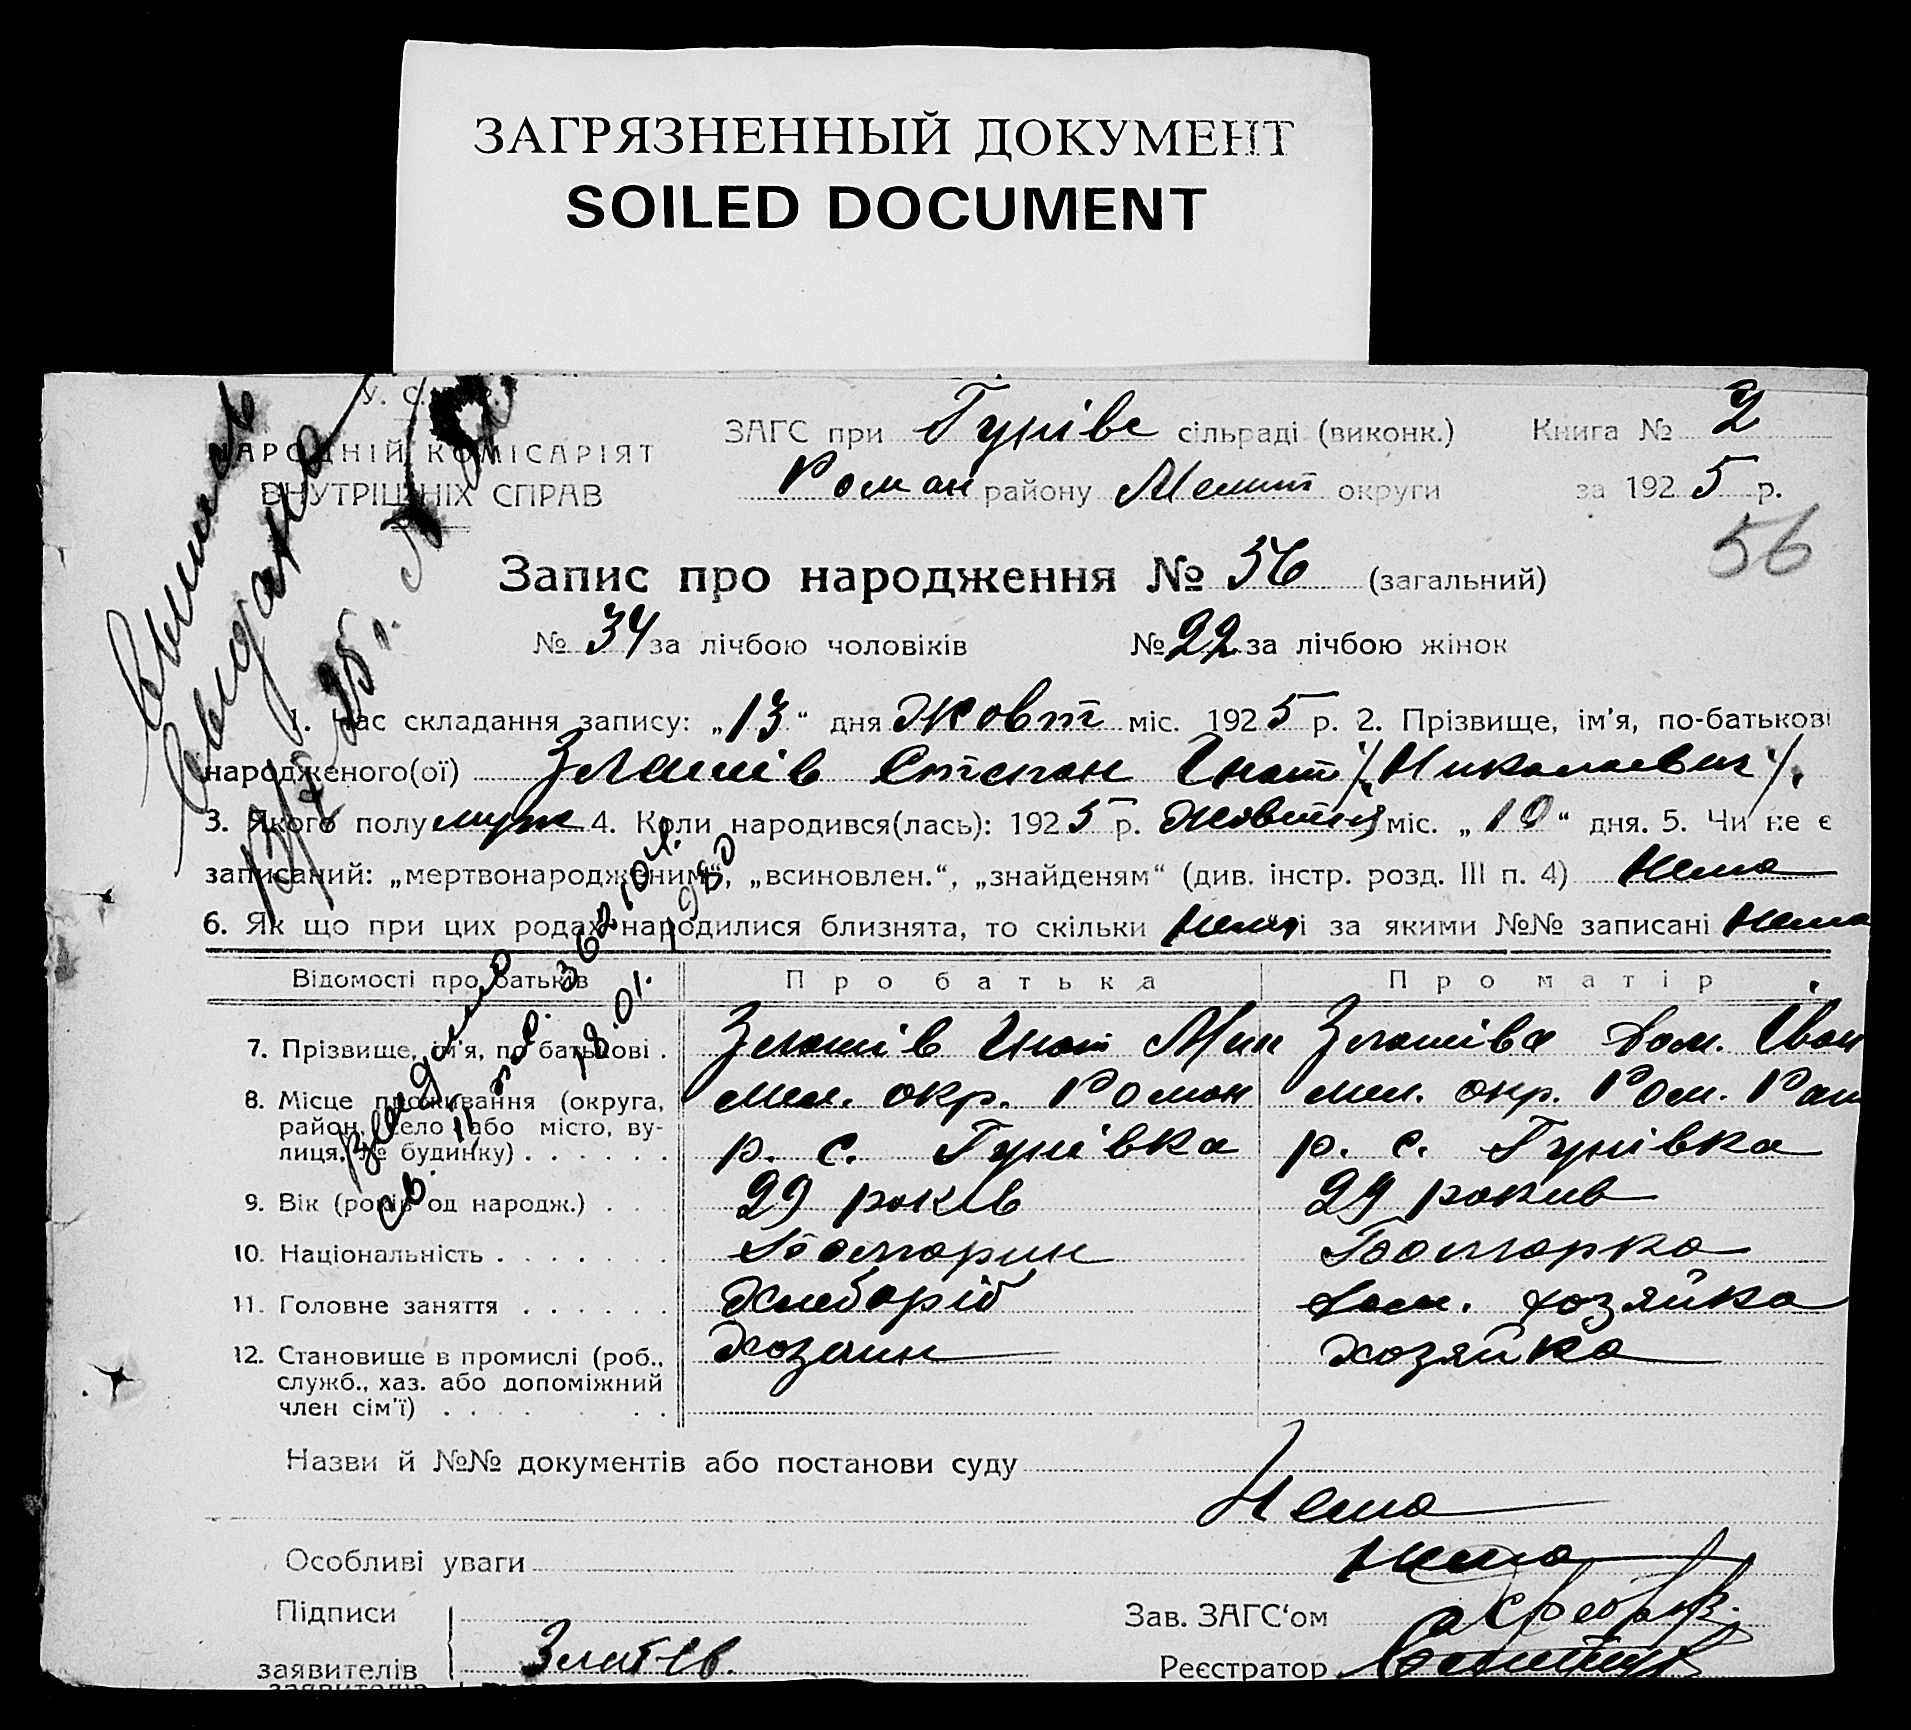 ЗАГРЯЗНЕННЫЙ ДОКУМЕНТ
SOILED DOCUMENT
У. С.
АРОДНІЙ КОМІСАРІЯТ
ВНУТРІШНІХ СПРАВ
ЗАГС при Гунівс сільраді (виконк.) Книга № 2
Роман району Мелит округи за 1925 р.
56
Запис про народження № 56 (загальний)
№ 34 за лічбою чоловіків № 22 за лічбою жінок
1. Час складання запису: „13“ дня Жовт міс. 1925 р. 2. Прізвище, ім'я, по-батькові
народженого(ої) Златів Степан Гнат /Николаевич/.
3. Якого полу муж 4. Коли народився(лась): 1925 р. Жовтня міс. „10“ дня. 5. Чи не є
записаний: „мертвонародженим“, „всиновлен.“, „знайденям“ (див. інстр. розд. III п. 4) Нема
6. Як що при цих родах народилися близнята, то скільки Нема і за якими №№ записані Нема
Відомості про батьків Про батька Про матір
7. Прізвище, ім'я, по батькові . Златів Гнат Мик Златіва Дом. Іван
8. Місце проживання (округа, район, село або місто, вулиця, № будинку) . . . . . .
мел. окр. Роман мел. окр. Ром. Ром
р. с. Гунівка р. с. Гунівка
9. Вік (років од народж.) . . . 29 років 29 рокив
10. Національність . . . . . . . Болгарин Болгарка
11. Головне заняття . . . . . . Хлеборіб Дом. хозяйка
12. Становище в промислі (роб., Хозаин хозяйка
служб., хаз. або допоміжний
член сім'ї) . . . . . . .
Назви й №№ документів або постанови суду
Нема
Особливі уваги Нема
Підписи Зав. ЗАГС'ом
заявителів Златев. Реєстратор
Выпись
выдана
13/X 25 г.
Выдано
св. II 362104
18.01. 1980